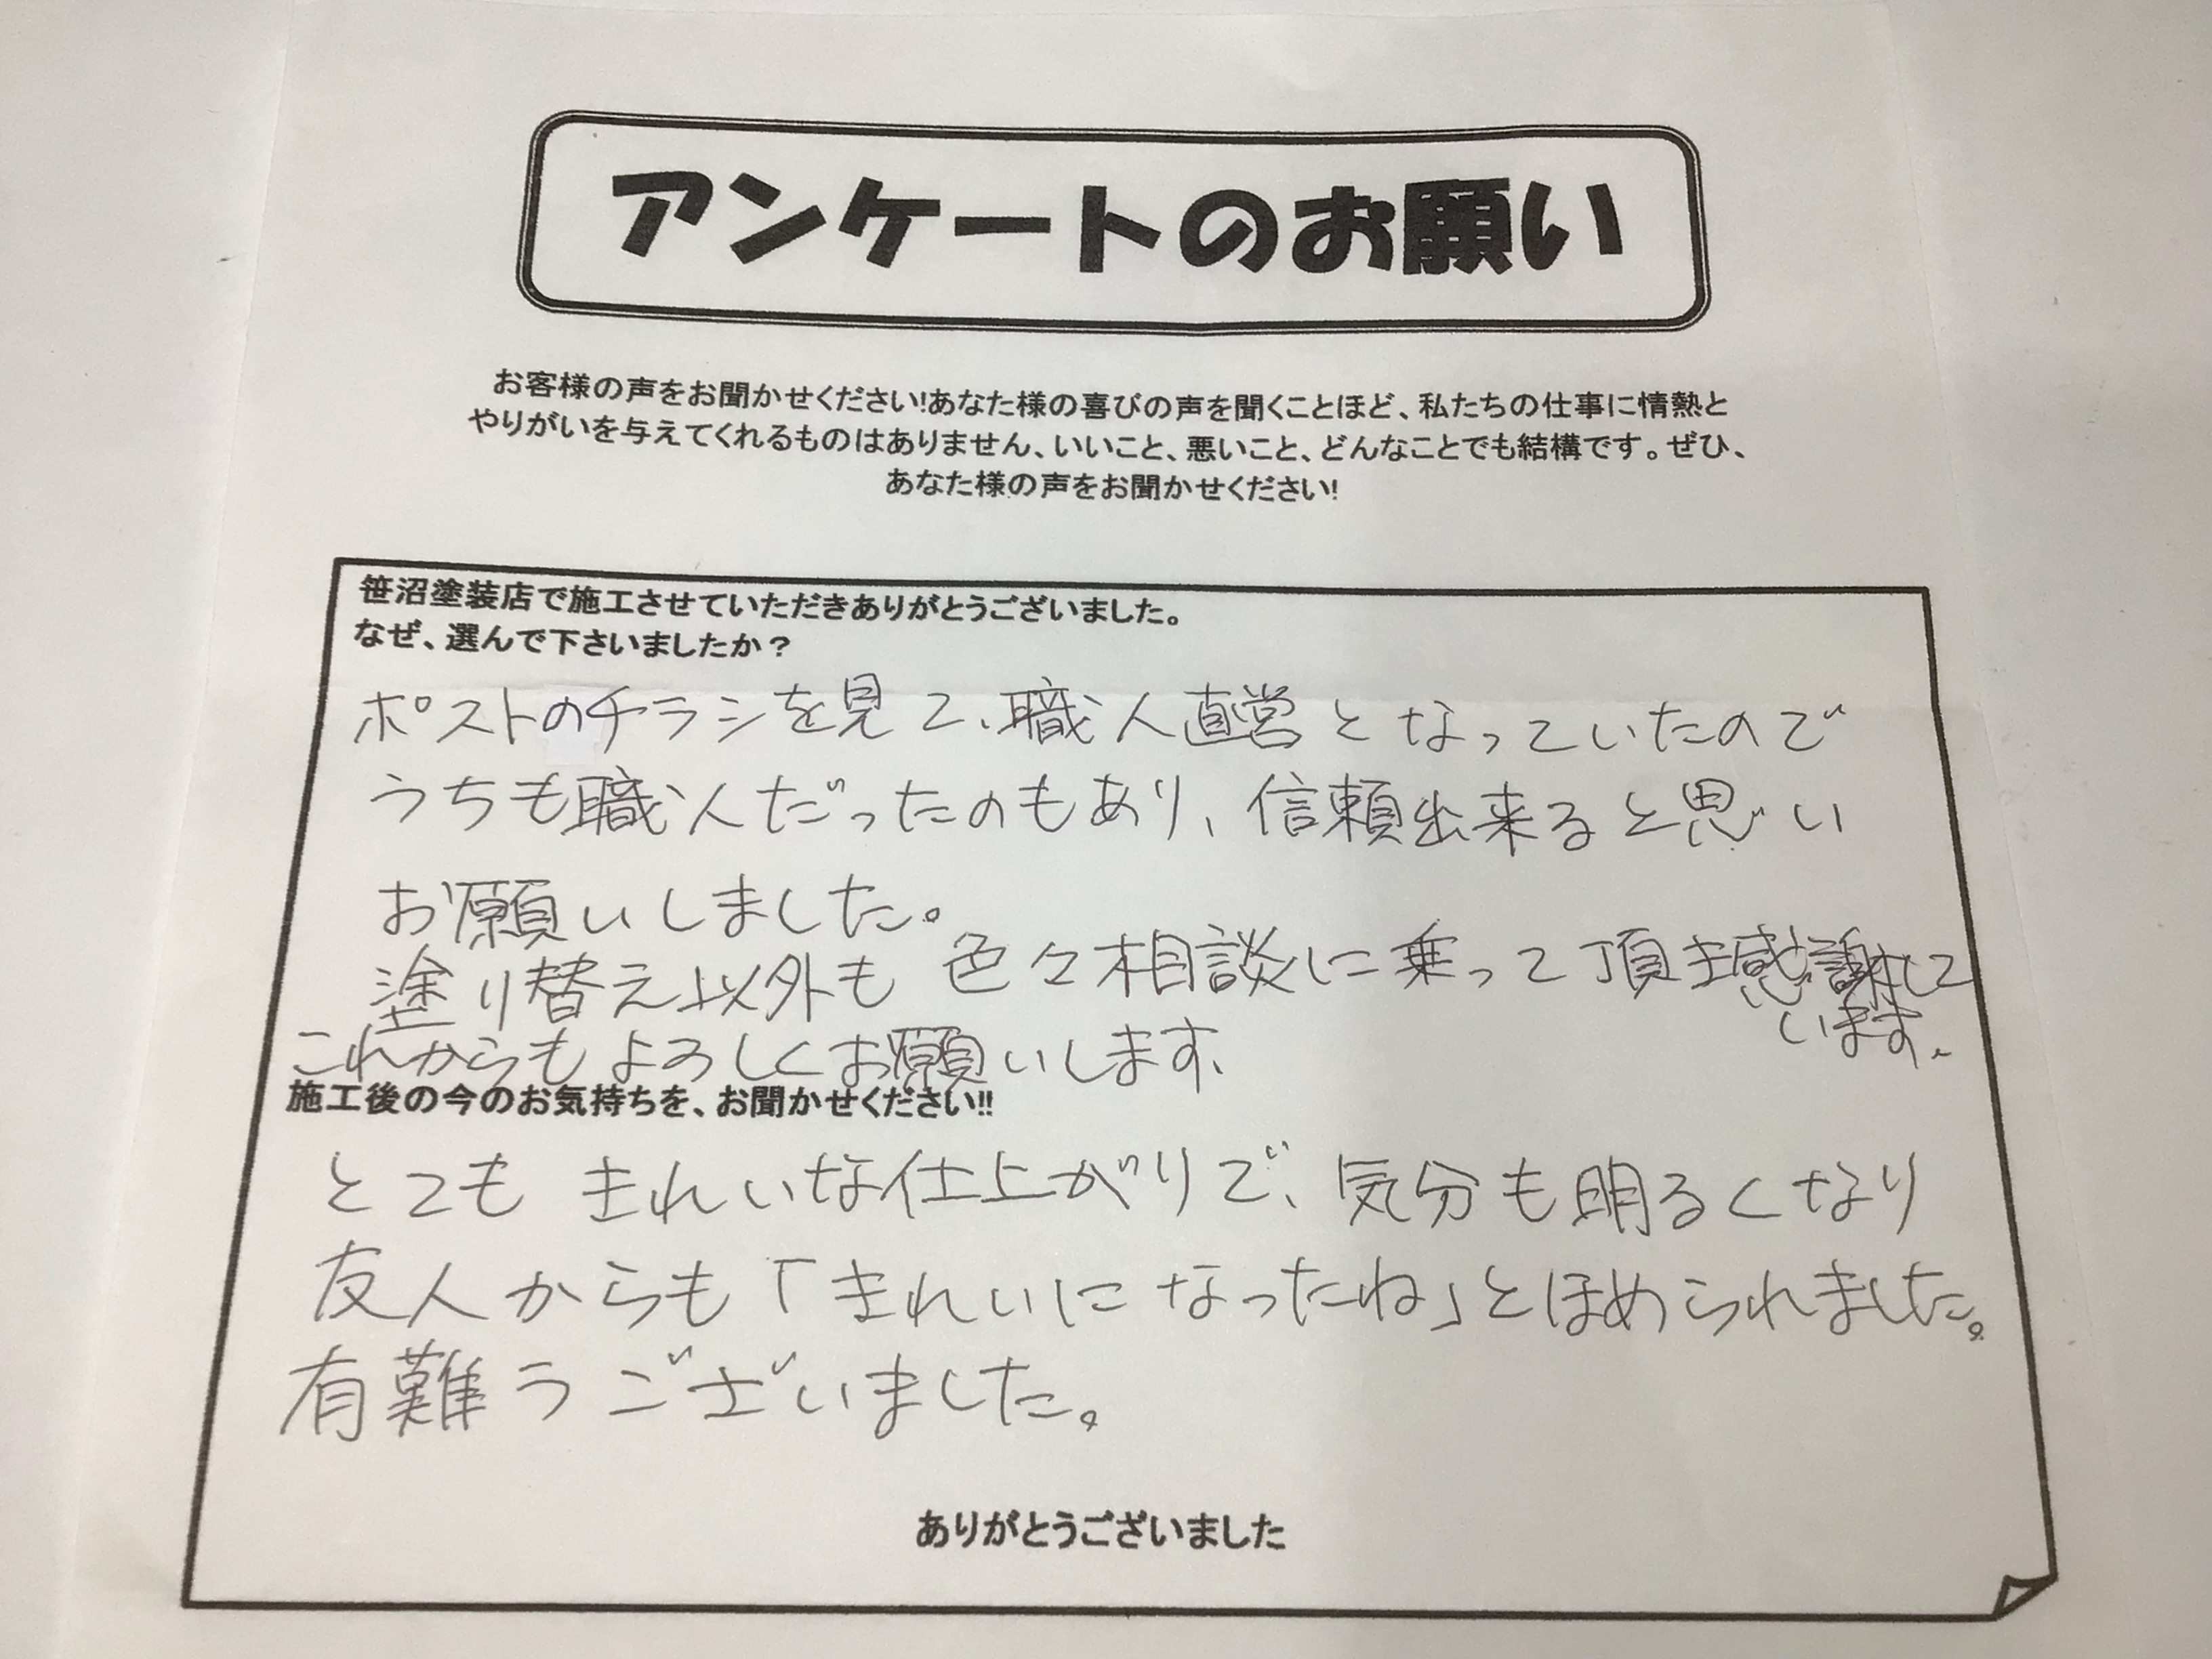 アンケートのお願い
お客様の声をお聞かせください!あなた様の喜びの声を聞くことほど、私たちの仕事に情熱と
やりがいを与えてくれるものはありません、いいこと、悪いこと、どんなことでも結構です。ぜひ、
あなた様の声をお聞かせください!
笹沼塗装店で施工させていただきありがとうございました。
なぜ、選んで下さいましたか？
ポストのチラシを見て、職人直営となっていたので
うちも職人だったのもあり、信頼出来ると思い
お願いしました。
塗り替え以外も色々相談に乗って頂き感謝して
います。
これからもよろしくお願いします、
施工後の今のお気持ちを、お聞かせください!!
とても きれいな仕上がりで、気分も明るくなり
友人からも「きれいになったね」とほめられました。
有難うございました。
ありがとうございました